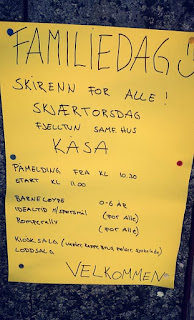 FAMILIEDAG
SKIRENN FOR ALLE!
SKJÆRTORSDAG
FJELLTUN SAMF.HUS
KÅSA
PÅMELDING FRA KL 10.30
START KL 11.00
BARNELØYPE 0-6 ÅR
IDEALTID M/SPØRSMÅL (For Alle)
Romperally (For Alle)
KIOSKSALG (vafler, kaffe, brus, pølser,
LODDSALG
VELKOMMEN